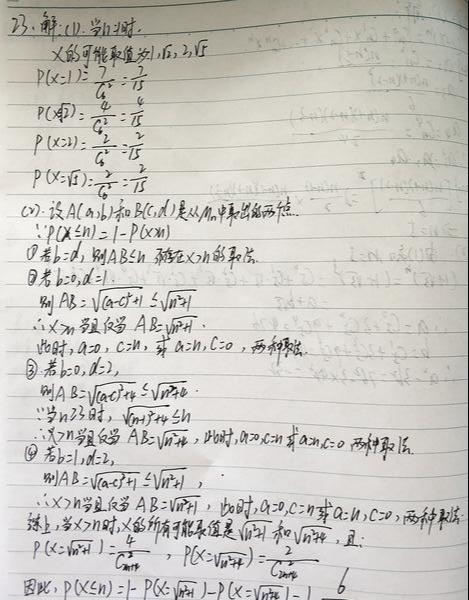 23. 解: (1). 当n=1时.
X的可能取值为1,√2,2,√5
P(X=1)=7/C₆²=7/15
P(X=√2)=4/C₆²=4/15
P(X=2)=2/C₆²=2/15
P(X=√5)=2/C₆²=2/15
(2). 设A(a,b)和B(c,d)是从Mn中取出的两个点.
∵P(X≤n)=1-P(X>n)
①若b=d, 则AB≤n 不存在X>n的取法.
②若b=0,d=1.
则AB=√((a-c)²+1)≤√(n²+1)
∴X>n当且仅当AB=√(n²+1).
此时,a=0,c=n,或a=n,c=0,两种取法.
③若b=0,d=2,
则AB=√((a-c)²+4)≤√(n²+4).
∵当n≥3时,√((n-1)²+4)≤n
∴X>n当且仅当AB=√(n²+4),此时,a=0,c=n或a=n,c=0 两种取法.
④若b=1,d=2,
则AB=√((a-c)²+1)≤√(n²+1),
∴X>n当且仅当AB=√(n²+1),此时a=0,c=n或a=n,c=0,两种取法.
综上,当X>n时,X的所有可能取值是√(n²+1)和√(n²+4),且:
P(X=√(n²+1))=4/C²₂ₙ₊₄, P(X=√(n²+4))=2/C²₂ₙ₊₄
因此, P(X≤n)=1-P(X=√(n²+1))-P(X=√(n²+4))=1-6